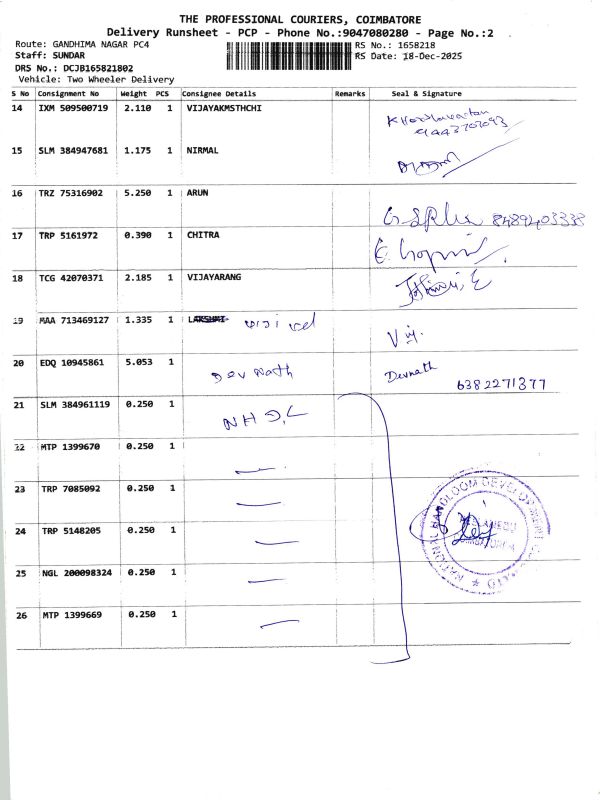 THE PROFESSIONAL COURIERS, COIMBATORE
Delivery Runsheet - PCP - Phone No.:9047080280 - Page No.:2
Route: GANDHIMA NAGAR PC4
RS No.: 1658218
Staff: SUNDAR
RS Date: 18-Dec-2025
DRS No.: DCJB165821802
Vehicle: Two Wheeler Delivery
S No Consignment No Weight PCS Consignee Details Remarks Seal & Signature
14 IXM 509500719 2.110 1 VIJAYAKMSTHCHI
15 SLM 384947681 1.175 1 NIRMAL
16 TRZ 75316902 5.250 1 ARUN 8489403333
17 TRP 5161972 0.390 1 CHITRA
18 TCG 42070371 2.185 1 VIJAYARANG
19 MAA 713469127 1.335 1 LAKSHMI
20 EDQ 10945861 5.053 1 Dev nath Devnath
6382271377
21 SLM 384961119 0.250 1 NHDC
22 MTP 1399670 0.250 1
23 TRP 7085092 0.250 1
24 TRP 5148205 0.250 1
25 NGL 200098324 0.250 1
26 MTP 1399669 0.250 1
NATIONAL HANDLOOM DEVELOPMENT